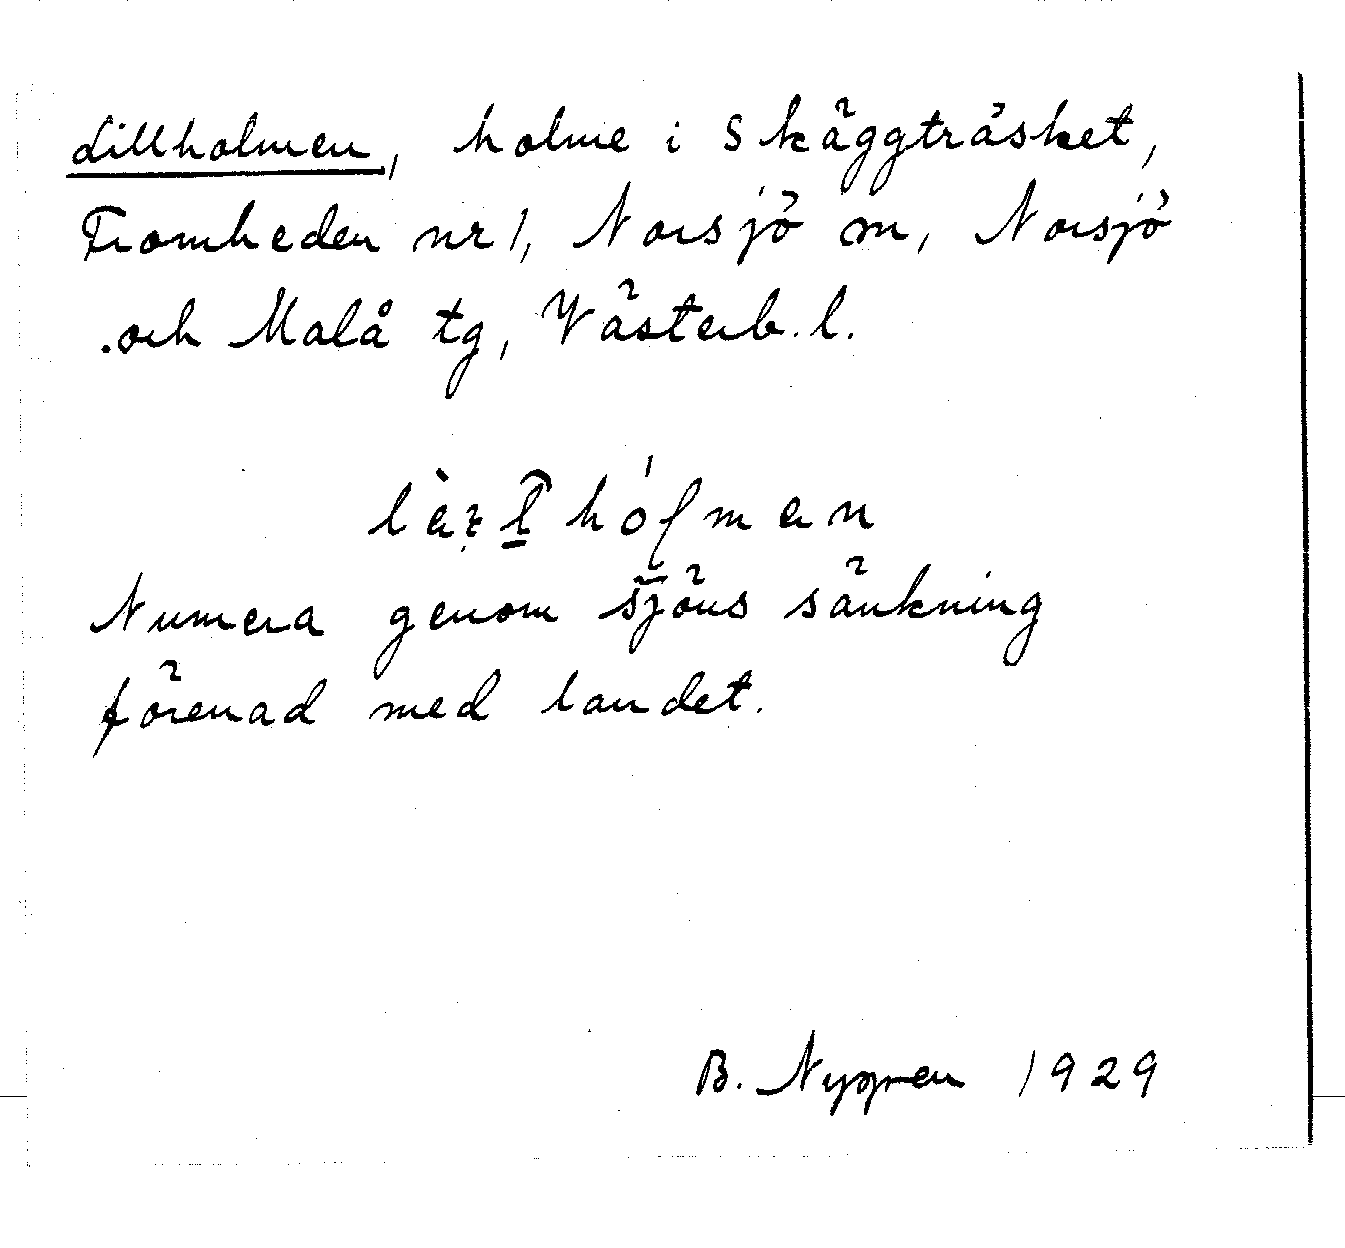 Lillholmen, holme i Skäggträsket,
Fromheden nr 1, Norsjö sn, Norsjö
och Malå tg, Västerb. l.
Numera genom sjöns sänkning
förenad med landet.
B. Nygren 1929